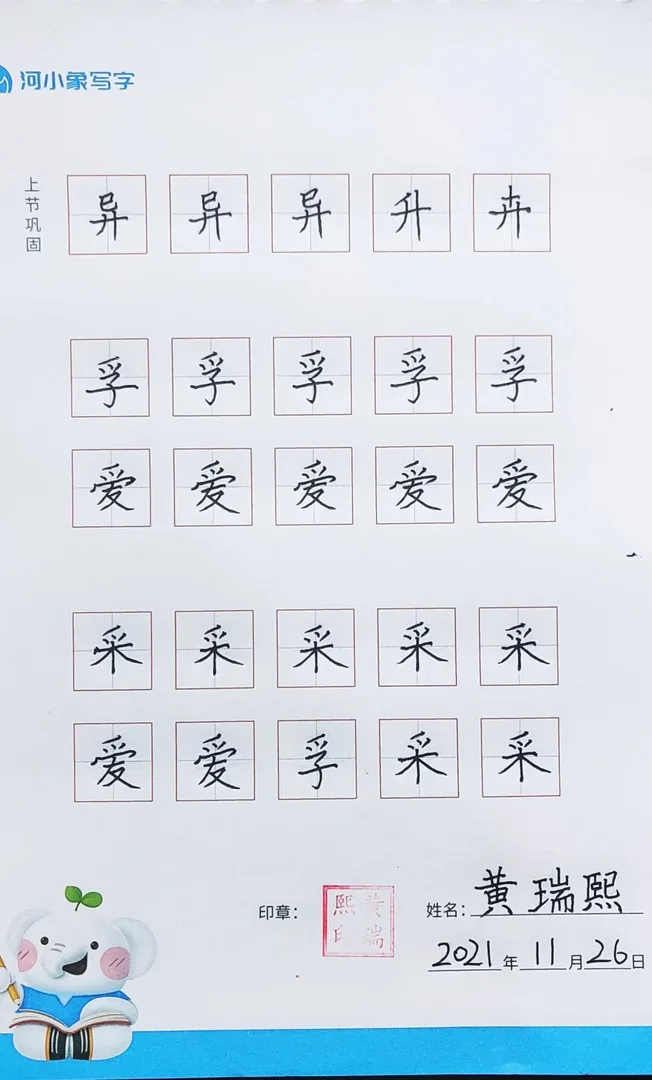 河小象写字
上节巩固
异 异 异 升 卉
孚 孚 孚 孚 孚
爱 爱 爱 爱 爱
采 采 采 采 采
爱 爱 孚 采 采
印章：
黄瑞熙印
姓名：黄瑞熙
2021年11月26日